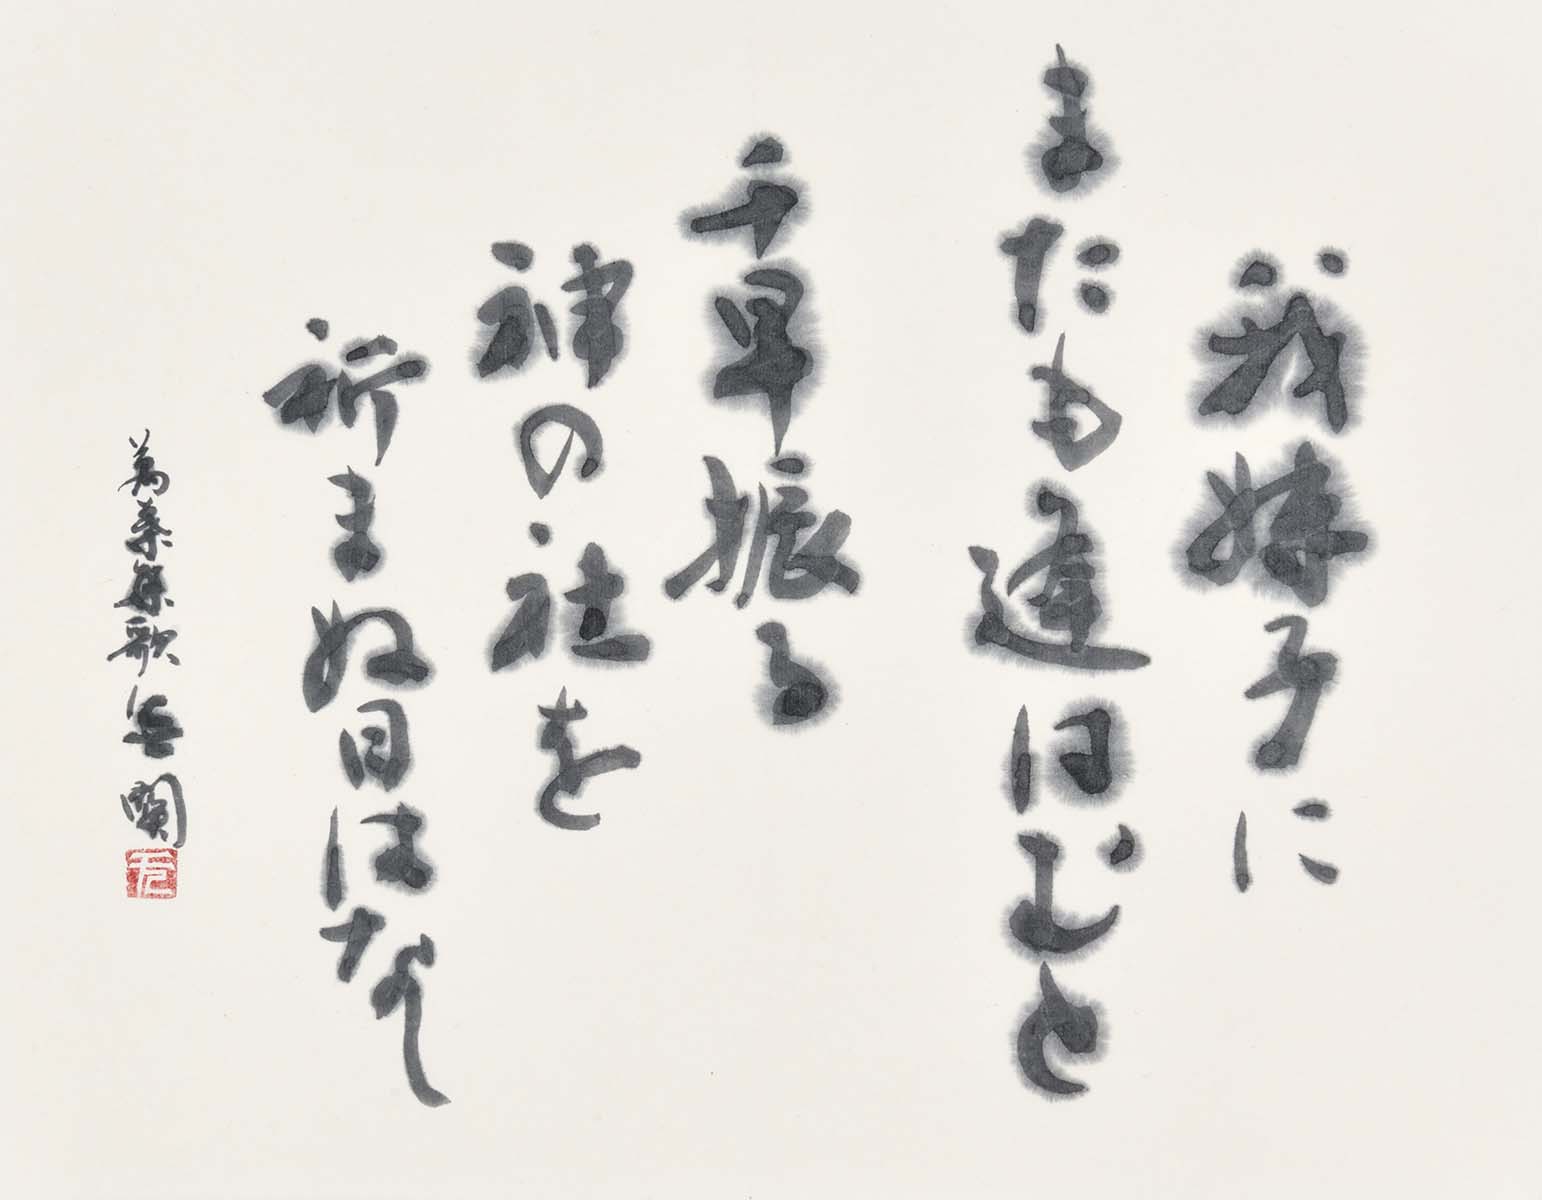 我妹子に
またも逢はむと
千早振る
神の社を
祈まぬ日はなし
萬葉集歌 岳関